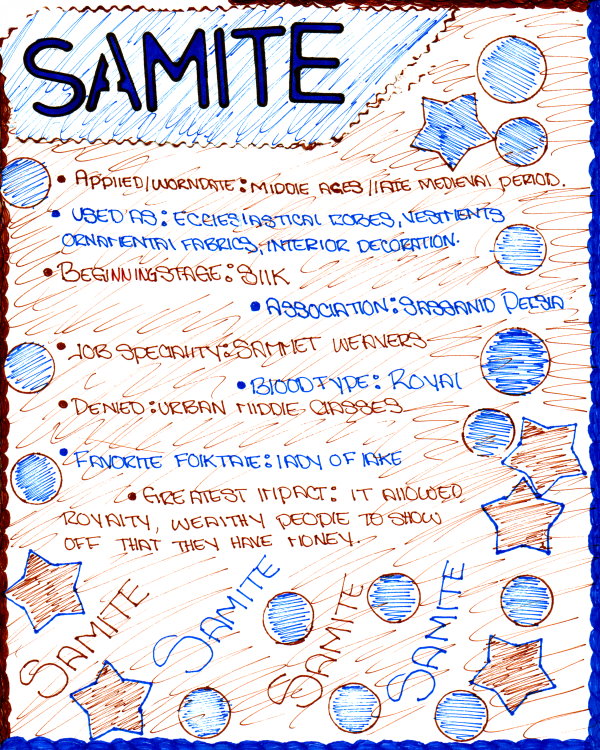 SAMITE
• APPLIED/WORNDATE: MIDDLE AGES/LATE MEDIEVAL PERIOD.
• USED AS: ECCLESIASTICAL ROBES, VESTMENTS
ORNAMENTAL FABRICS, INTERIOR DECORATION.
• BEGINNINGSTAGE: SILK
• ASSOCIATION: SASSANID PERSIA
• JOB SPECIALITY: SAMMET WEAVERS
• BLOODTYPE: ROYAL
• DENIED: URBAN MIDDLE CLASSES
• FAVORITE FOLKTALE: LADY OF LAKE
• GREATEST IMPACT: IT ALLOWED
ROYALTY, WEALTHY PEOPLE TO SHOW
OFF THAT THEY HAVE MONEY.
SAMITE
SAMITE
SAMITE
SAMITE